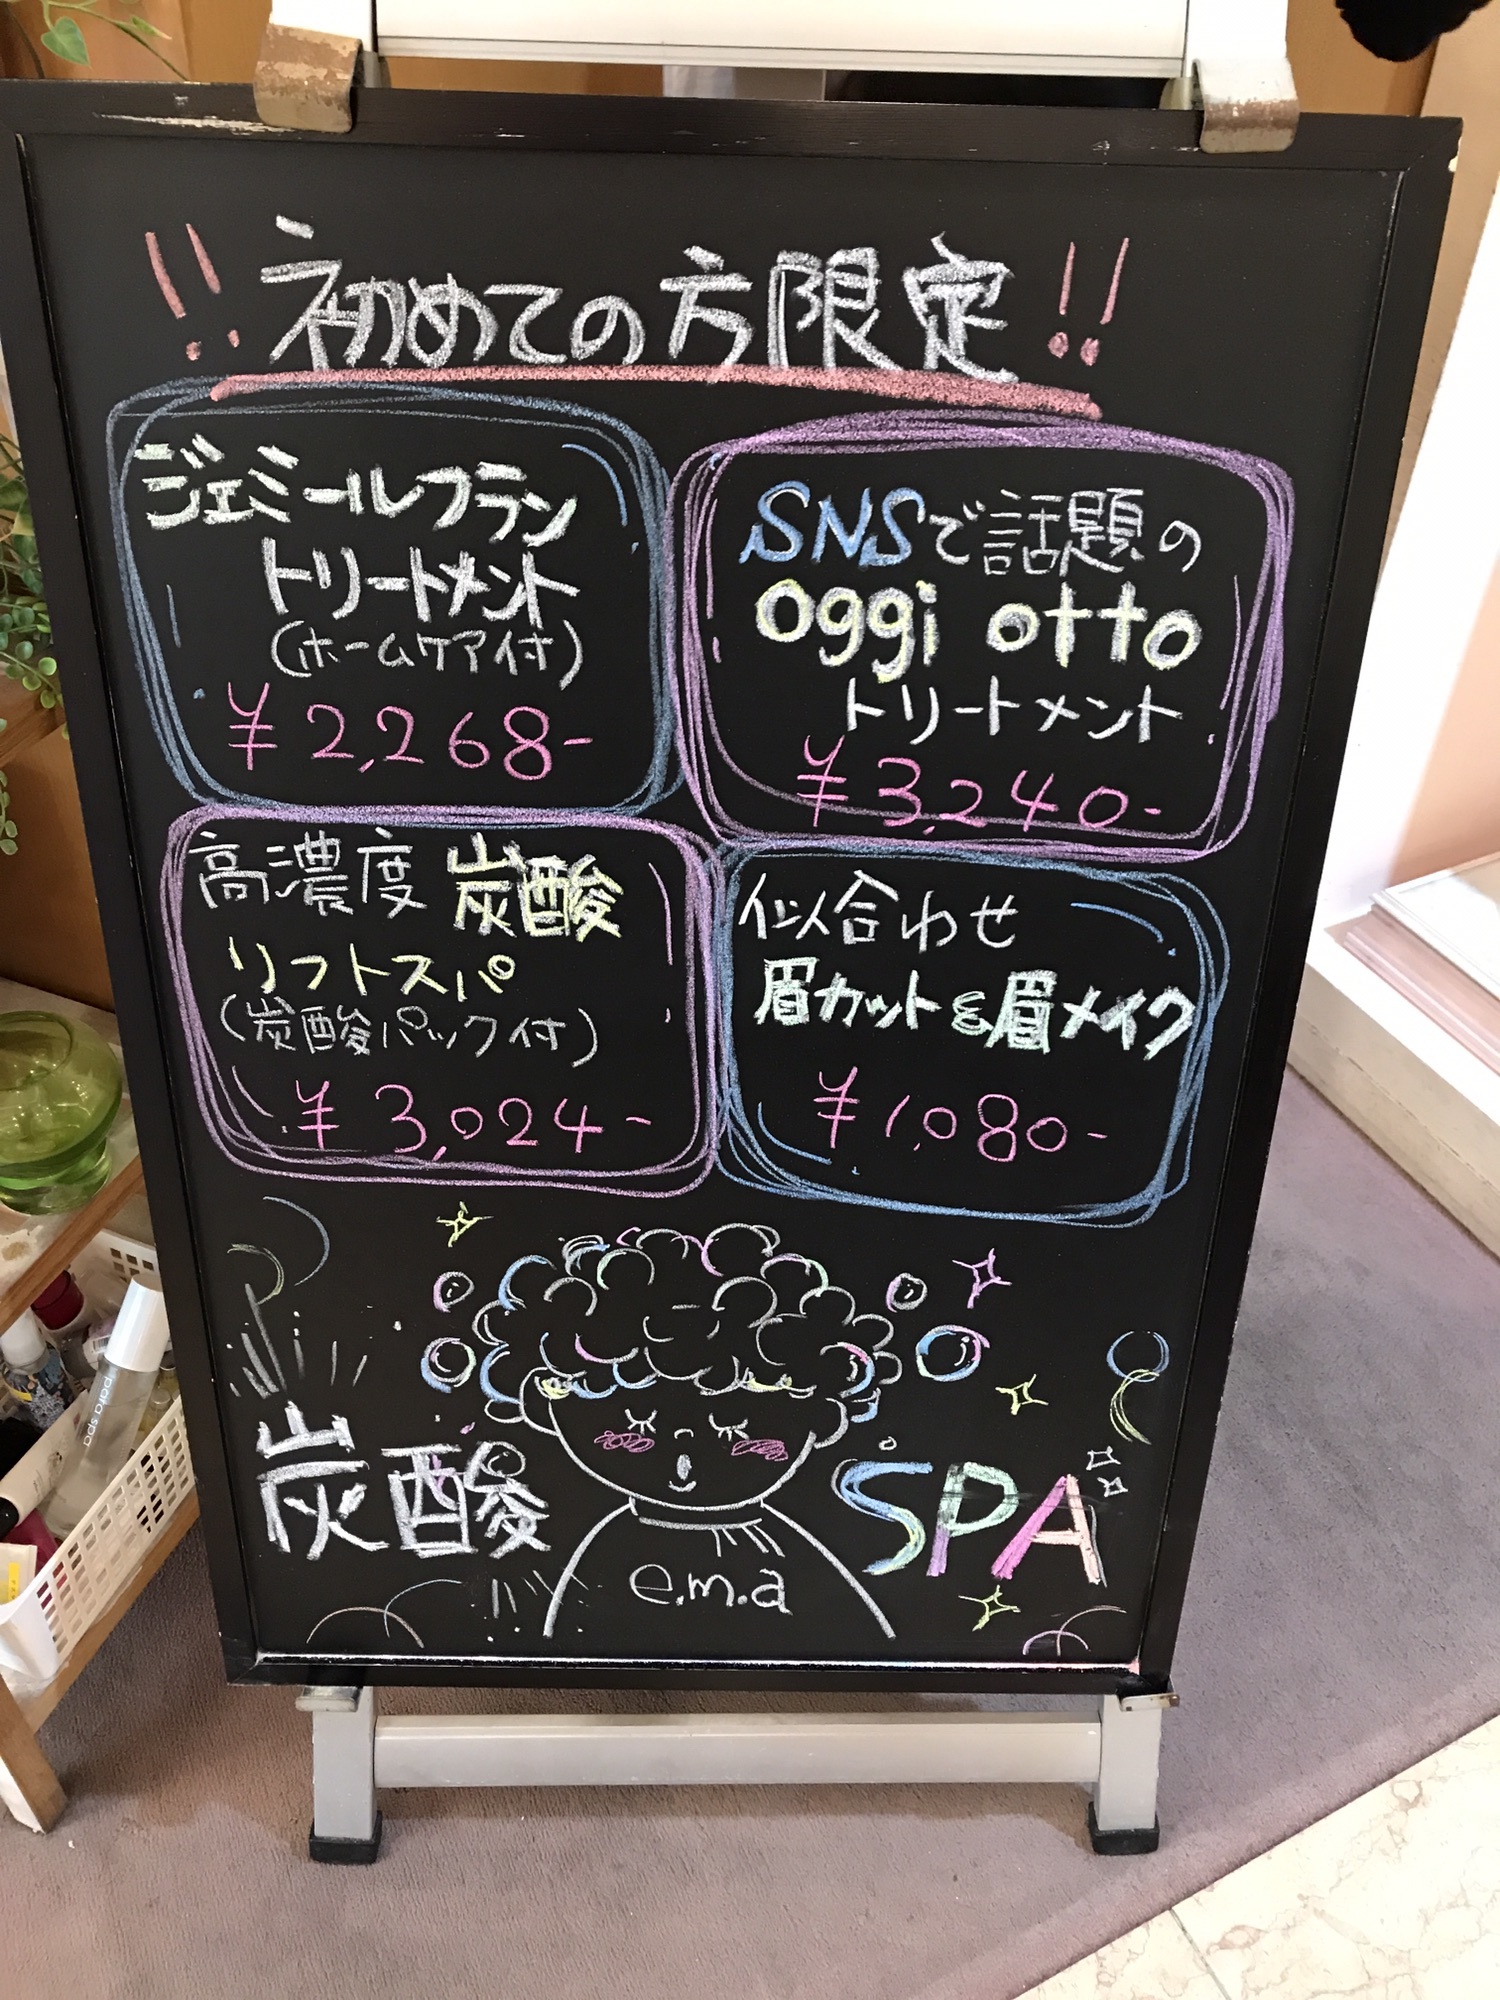 !! 初めての方限定 !!
ジェミールフラン
トリートメント
(ホームケア付)
¥2,268-
SNSで話題の
oggi otto
トリートメント
¥3,240-
高濃度 炭酸
リフトスパ
(炭酸パック付)
¥3,024-
似合わせ
眉カット&眉メイク
¥1,080-
炭酸 SPA
e.m.a